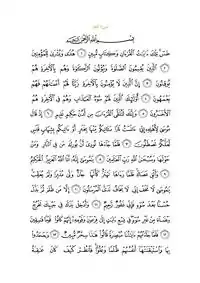 بسم الله الرحمن الرحيم
طس تلك ءايت القرءان وكتاب مبين ١ هدى وبشرى للمؤمنين
٢ الذين يقيمون الصلوة ويؤتون الزكوة وهم بالأخرة هم
يوقنون ٣ إن الذين لا يؤمنون بالأخرة زينا لهم أعملهم فهم
يعمهون ٤ أولئك الذين لهم سوء العذاب وهم في الأخرة هم
الأخسرون ٥ وإنك لتلقى القرءان من لدن حكيم عليم ٦ إذ قال
موسى لأهله إني ءانست نارا سءاتيكم منها بخبر أو ءاتيكم بشهاب قبس
لعلكم تصطلون ٧ فلما جاءها نودي أن بورك من في النار ومن
حولها وسبحن الله رب العلمين ٨ يموسى إنه أنا الله العزيز الحكيم
٩ وألق عصاك فلما رءاها تهتز كأنها جان ولى مدبرا ولم يعقب
يموسى لا تخف إني لا يخاف لدي المرسلون ١٠ إلا من ظلم ثم بدل
حسنا بعد سوء فإني غفور رحيم ١١ وأدخل يدك في جيبك تخرج
بيضاء من غير سوء في تسع ءايت إلى فرعون وقومه إنهم كانوا قوما فسقين
١٢ فلما جاءتهم ءايتنا مبصرة قالوا هذا سحر مبين ١٣ وجحدوا
بها واستيقنتها أنفسهم ظلما وعلوا فانظر كيف كان عقبة